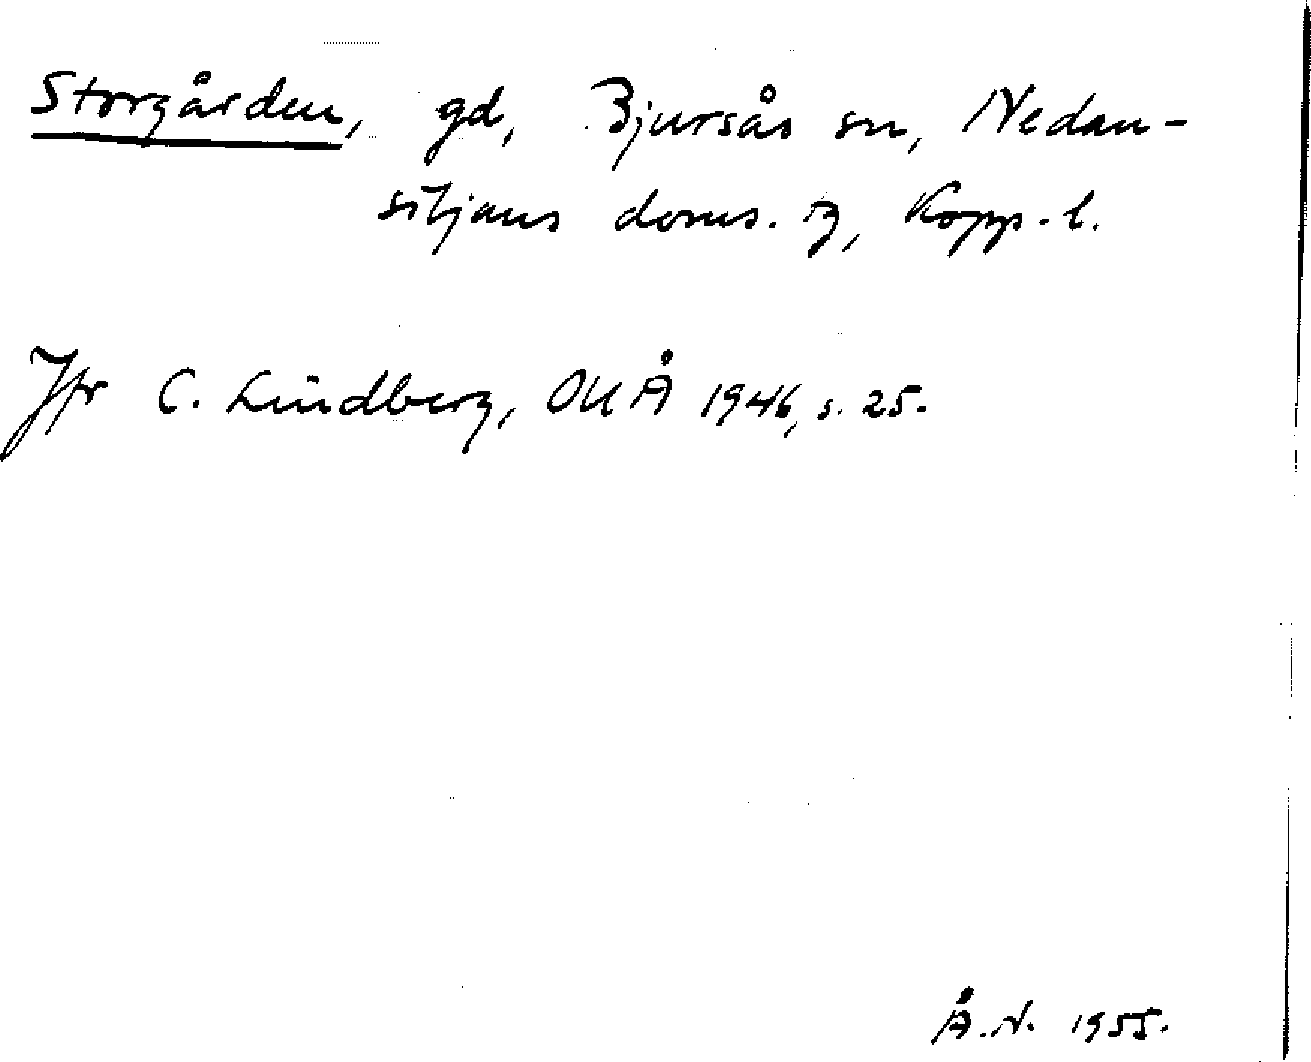 Storgården, gd, Bjursås sn, Nedan-
siljans doms. , Kopp. l.
Jfr C. Lindberg, OUÅ 1946, s. 25.
Å. N. 1955.